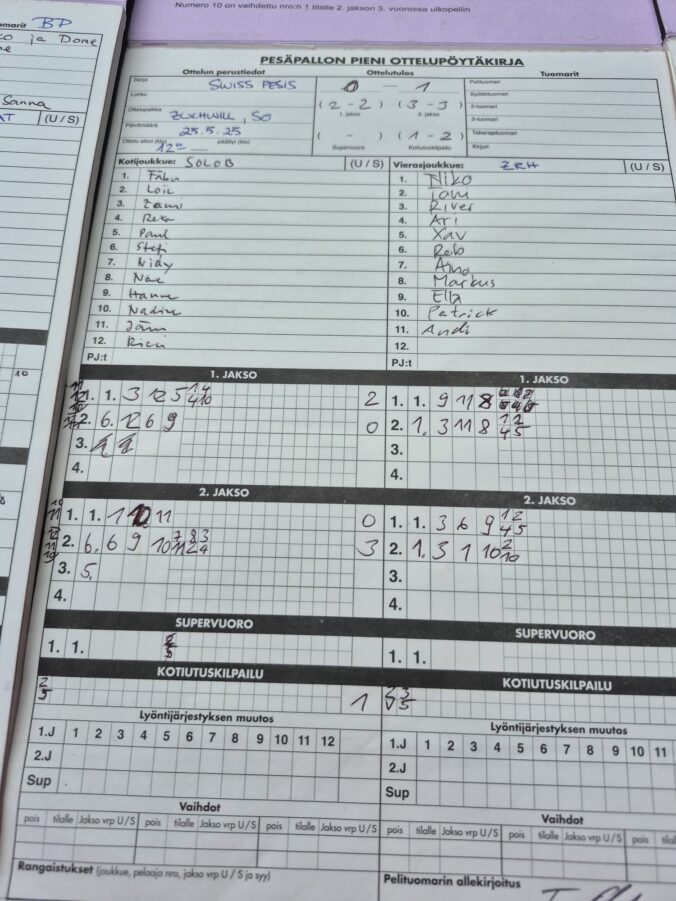 Numero 10 on vaihdettu nro:n 1 tilalle 2. jakson 3. vuorossa ulkopeliin
BP
ja Done
Sanna
(U / S)
PESÄPALLON PIENI OTTELUPÖYTÄKIRJA
Ottelun perustiedot Ottelutulos Tuomarit
Sarja SWISS PESIS 0 - 1 Pelituomari
Lohko (2 - 2) (3 - 3) Syöttötuomari
1. jakso 2. jakso 2-tuomari
Ottelupaikka ZUCHWILL, SO 3-tuomari
Päivämäärä 25.5.25 ( - ) (1 - 2) Takarajatuomari
Ottelu alkoi (klo) 12⁰⁰ päättyi (klo) Supervuoro Kotiutuskilpailu Kirjuri
Kotijoukkue: SOLOB (U / S) Vierasjoukkue: ZRH (U / S)
1. Fäbu 1. Niko
2. Loic 2. Tom
3. Zami 3. River
4. Reta 4. Ari
5. Paul 5. Xav
6. Stefi 6. Rob
7. Nidy 7. Aino
8. Noe 8. Markus
9. Hanne 9. Ella
10. Nadine 10. Patrick
11. Jäm 11. Andi
12. Ricu 12.
PJ:t PJ:t
1. JAKSO 1. JAKSO
1. 1. 3 12 5 1 4 4 10 2 1. 1. 9 11 8
2. 6. 12 6 9 0 2. 1. 3 11 8 1 2 4 5
3. 3.
4. 4.
2. JAKSO 2. JAKSO
1. 1. 1 10 11 0 1. 1. 3 6 9 1 2 4 5
2. 6. 6 9 10 7 8 3 11 2 4 3 2. 1. 3 1 10 2 10
3. 5. 3.
4. 4.
SUPERVUORO SUPERVUORO
1. 1. 1. 1.
KOTIUTUSKILPAILU KOTIUTUSKILPAILU
2 5 1 3 5
Lyöntijärjestyksen muutos Lyöntijärjestyksen muutos
1.J 1 2 3 4 5 6 7 8 9 10 11 12 1.J 1 2 3 4 5 6 7 8 9 10 11
2.J 2.J
Sup Sup
Vaihdot Vaihdot
pois tilalle Jakso vrp U / S pois tilalle Jakso vrp U / S pois tilalle Jakso vrp U / S pois tilalle Jakso vrp U / S pois tilalle Jakso vrp U / S pois
Rangaistukset (joukkue, pelaaja nro, jakso vrp U / S ja syy) Pelituomarin allekirjoitus